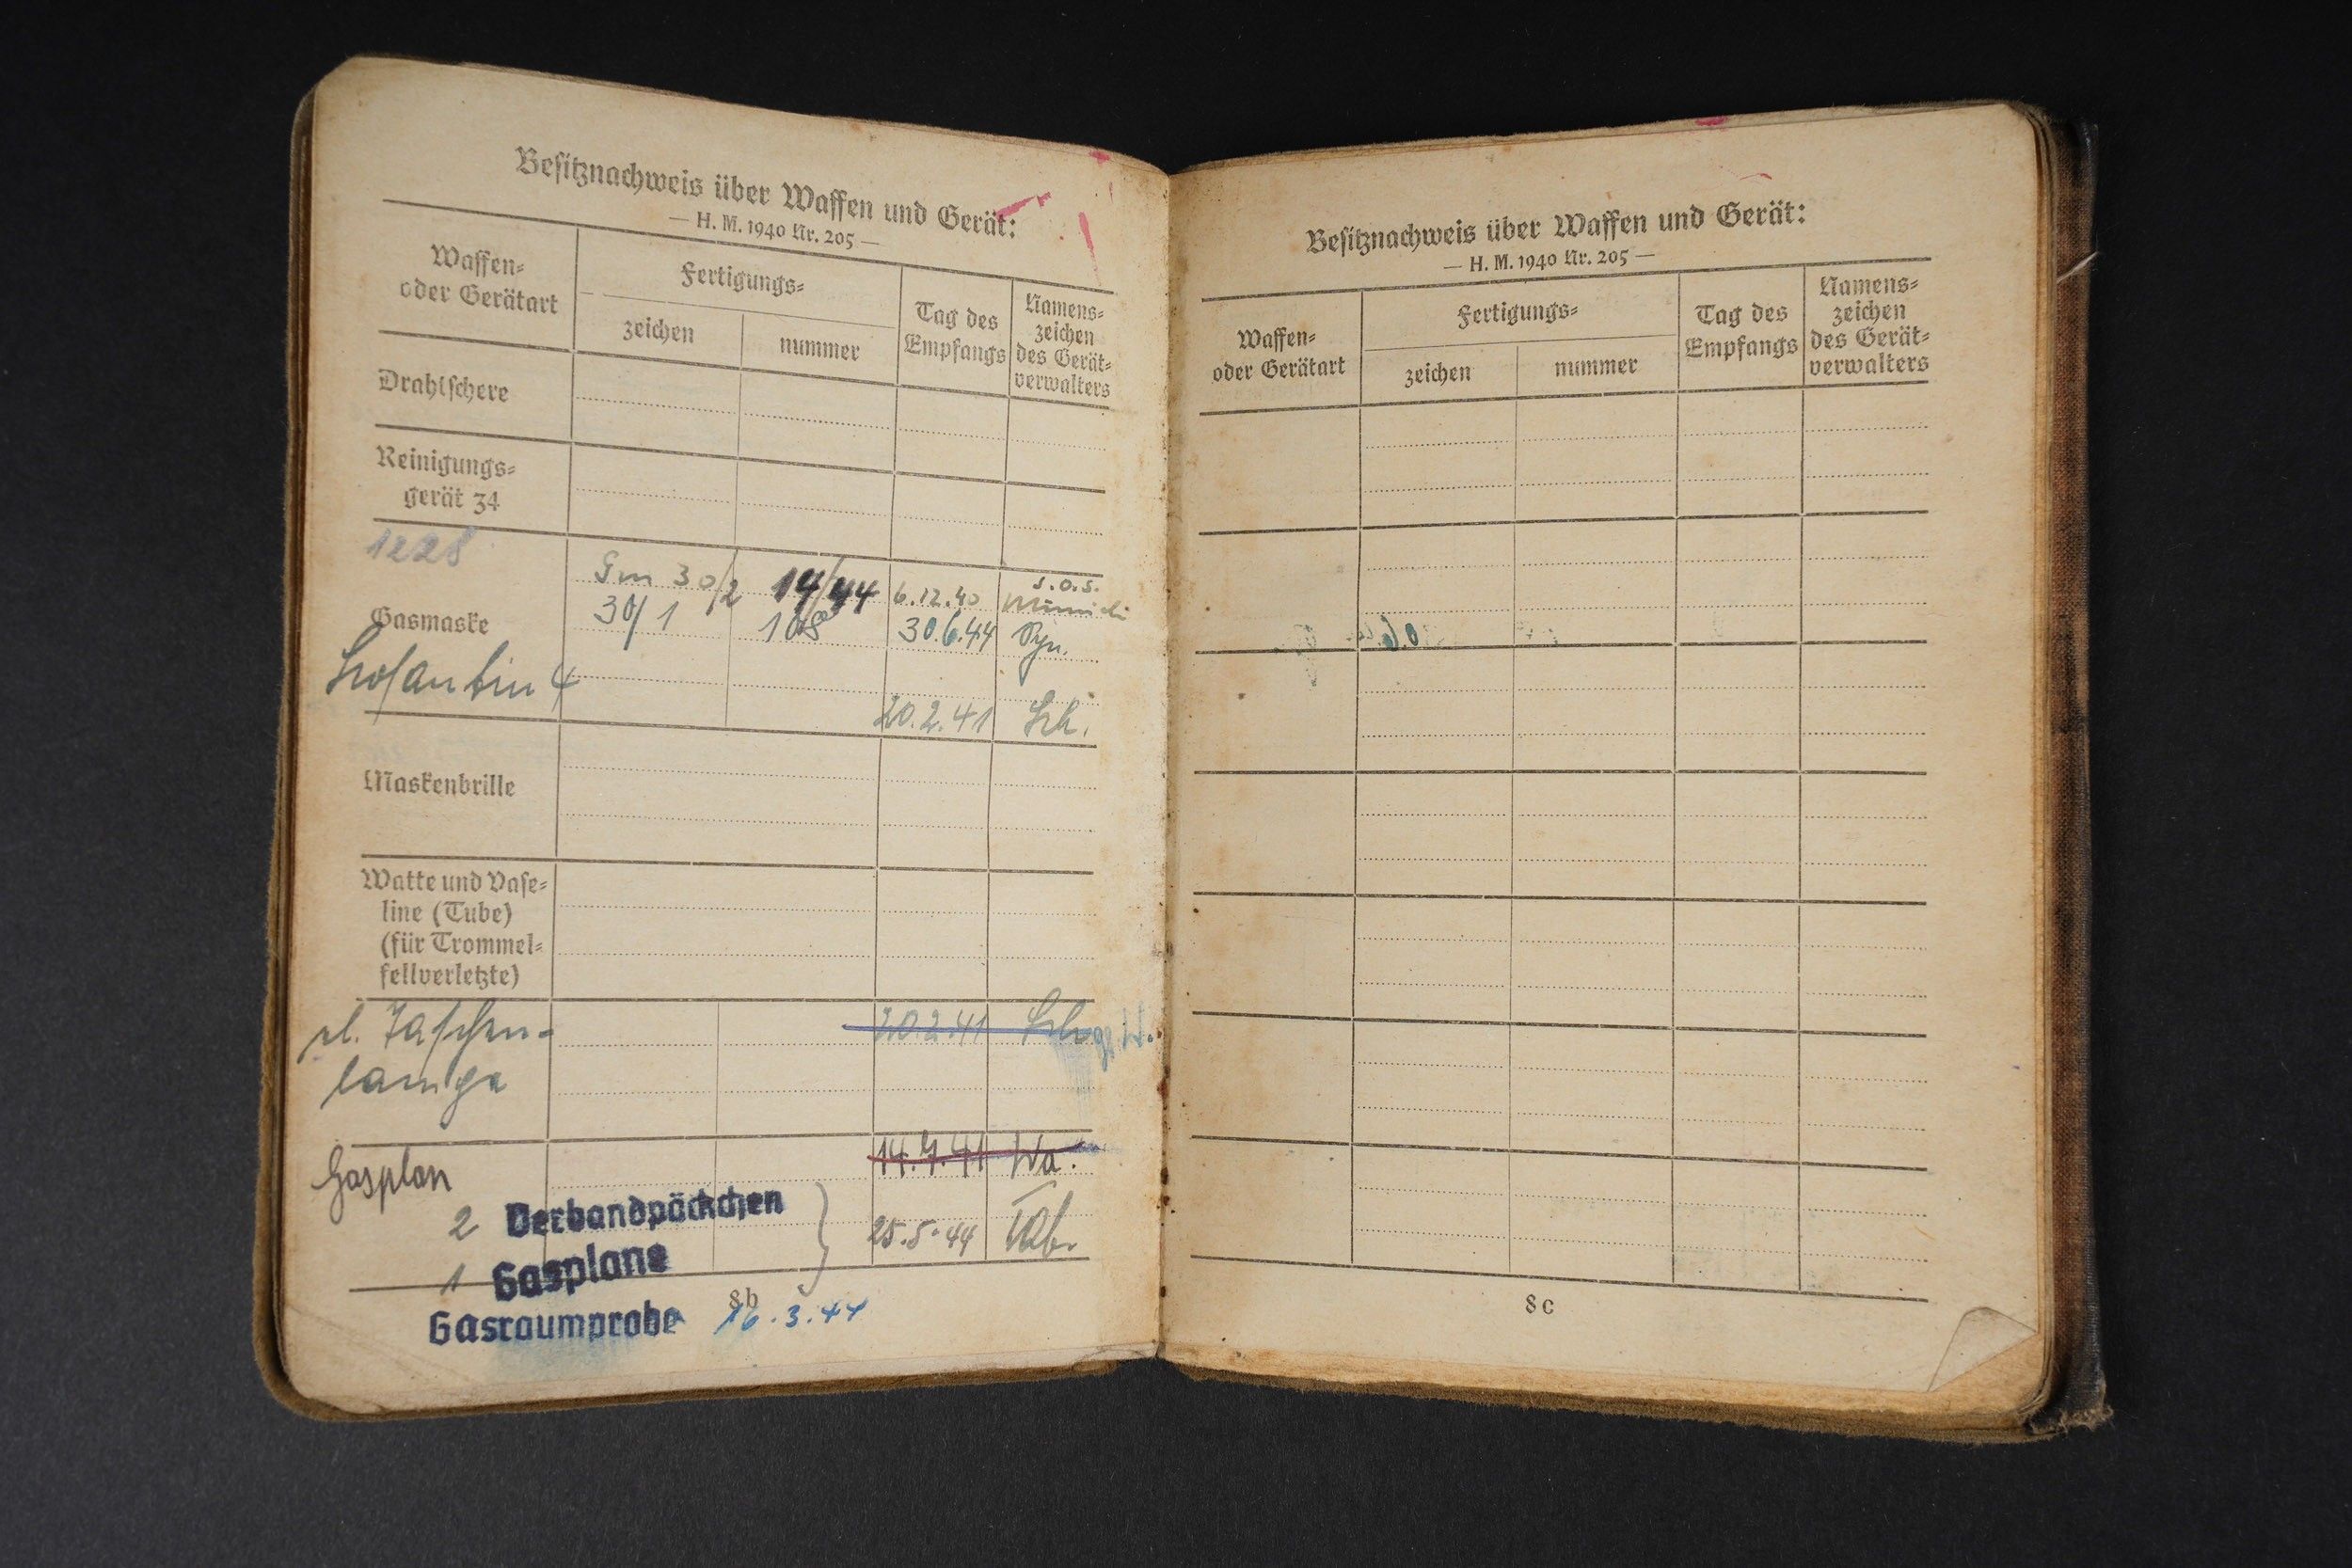 Besitznachweis über Waffen und Gerät:
— H. M. 1940 Nr. 205 —
Waffen-
oder Gerätart
Fertigungs-
zeichen
nummer
Tag des
Empfangs
Namens-
zeichen
des Gerät-
verwalters
Drahtschere
Reinigungs-
gerät 34
1228
Gm 30/2 14/44 6.12.40 S.O.S.
Gasmaske 30/1 108 30.6.44
20.2.41 Sch.
Maskenbrille
Watte und Vase-
line (Tube)
(für Trommel-
fellverletzte)
el. Taschen- 20.2.41
lampe
Gasplan 14.7.41 Wa.
2 Verbandpäckchen
25.5.44
1 Gasplane
8b
Gasraumprobe 16.3.44
Besitznachweis über Waffen und Gerät:
— H. M. 1940 Nr. 205 —
Waffen-
oder Gerätart
Fertigungs-
zeichen
nummer
Tag des
Empfangs
Namens-
zeichen
des Gerät-
verwalters
8c